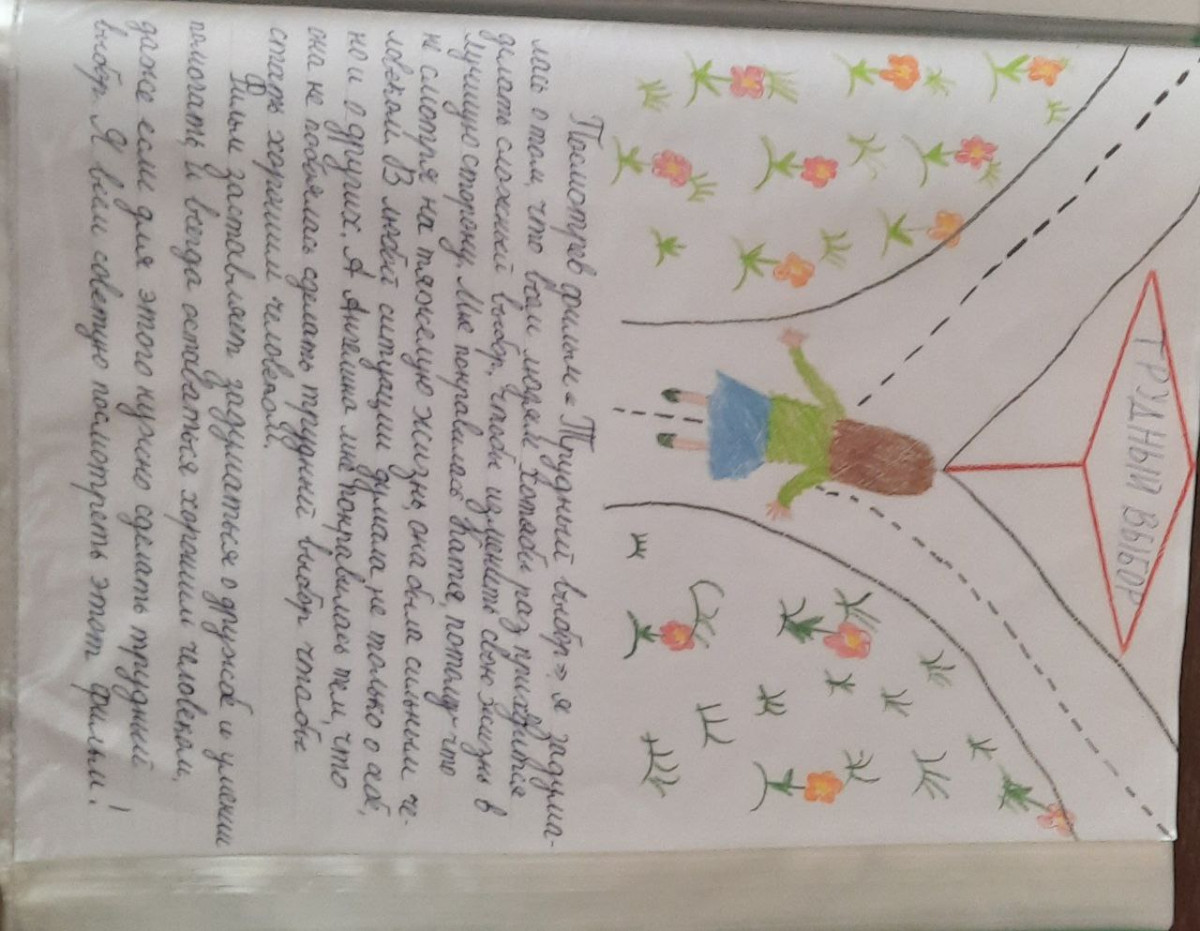 ТРУДНЫЙ ВЫБОР
Посмотрев фильм «Трудный выбор» я задума-
лась о том, что всем людям хотябы раз придйтся
делать сложный выбор, чтобы изменить свою жизнь в
лучшую сторону. Мне понравилась Катя, потому-что
не смотря на тяжелую жизнь, она была сильным че-
ловеком. В любой ситуации думала не только о себе,
но и о других. А Анжела мне понравилась тем, что
она не побоялась сделать трудный выбор чтобы
стать хорошим человеком.
Фильм заставляет задуматься о дружбе и умении
помогать. И всегда оставаться хорошим человеком,
даже если для этого нужно сделать трудный
выбор. Я всем советую посмотреть этот фильм!